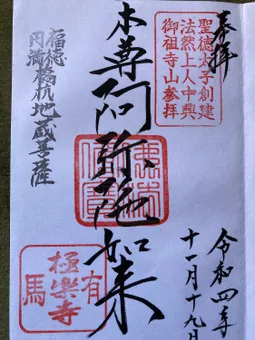 奉拝
聖徳太子創建
法然上人中興
御祖寺山参拝
本尊阿弥陀如来
福徳
円満
橋杭地蔵菩薩
令和四年
十一月十九日
有馬
極楽寺